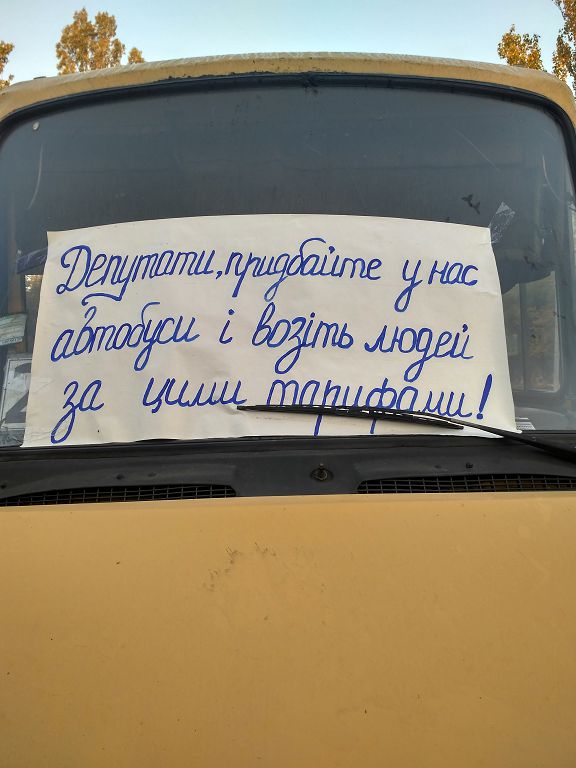 Депутати, придбайте у нас
автобуси і возіть людей
за цими тарифами!